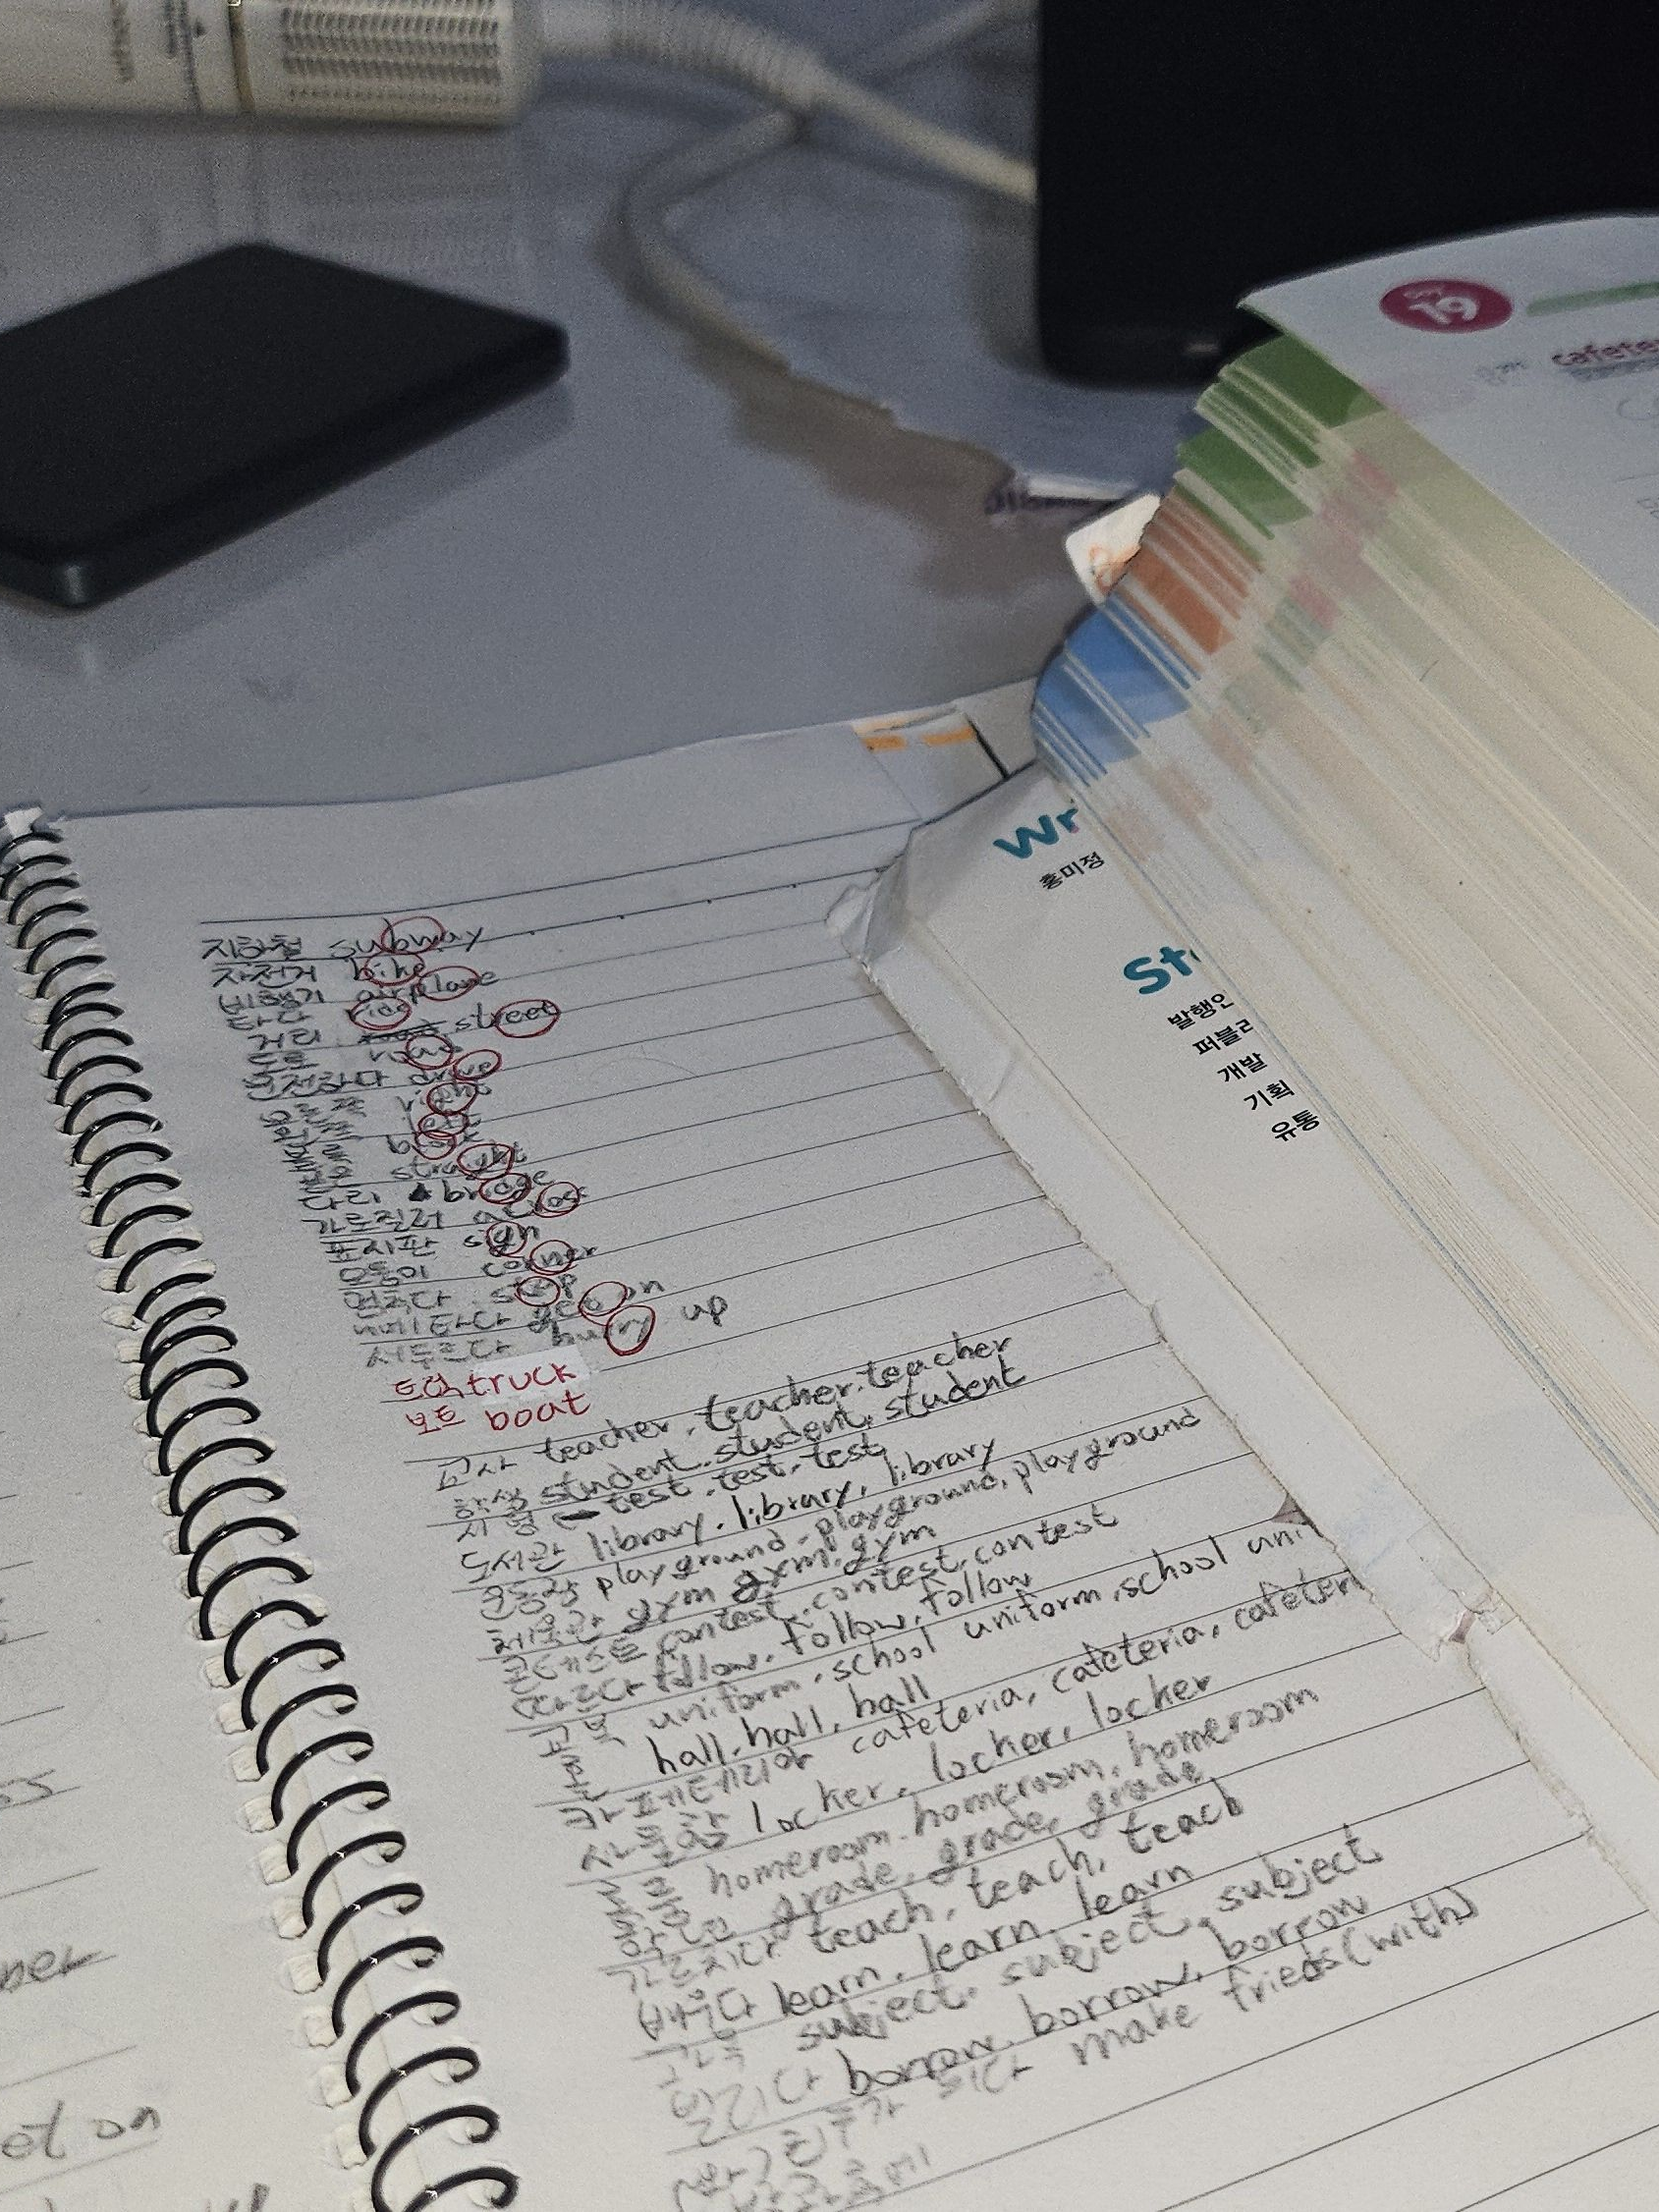 지하철 subway
자전거 bike
비행기 airplane
타다 ride
거리 street
도로 road
운전하다 drive
right
left
block
straight
다리 bridge
가로질러 across
표지판 sign
모퉁이 corner
멈추다 stop
get on
서두르다 hurry up
트럭 truck
보트 boat
교사 teacher, teacher, teacher
학생 student, student, student
시험 test, test, test
도서관 library, library, library
운동장 playground, playground, playground
체육관 gym gym, gym
콘테스트 contest, contest, contest
따르다 follow, follow, follow
교복 uniform, school uniform, school uni
hall, hall, hall
카페테리아 cafeteria, cafeteria, cafeteri
사물함 locker, locker, locker
homeroom, homeroom, homeroom
학년 grade, grade, grade
가르치다 teach, teach, teach
배우다 learn, learn, learn
과목 subject, subject, subject
빌리다 borrow, borrow, borrow
친구가 되다 make frieds(with)
방과후에
et on
19
cafete
Wr
홍미정
St
발행인
퍼블리
개발
기획
유통